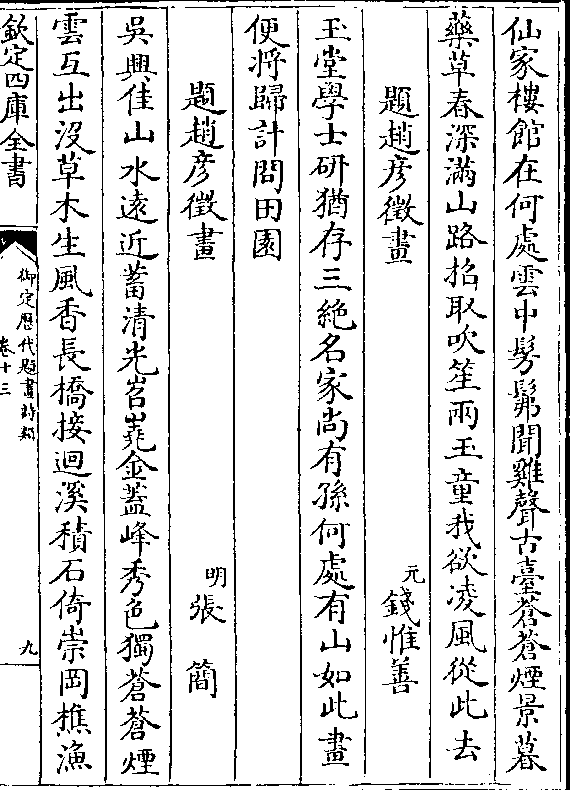 仙家樓館在何處雲中髣髴聞雞聲古臺蒼蒼煙景暮
藥草春深滿山路招取吹笙兩玉童我欲凌風從此去
題趙彦徵畫
元錢惟善
玉堂學士研猶存三絶名家尚有孫何處有山如此畫
便將歸計問田園
題趙彦徵畫
明張簡
吳興佳山水遠近蓄清光岧嶤金蓋峰秀色獨蒼蒼煙
雲互出沒草木生風香長橋接迴溪積石倚崇岡樵漁
欽定四庫全書
御定歷代題畫詩類
卷十三
九